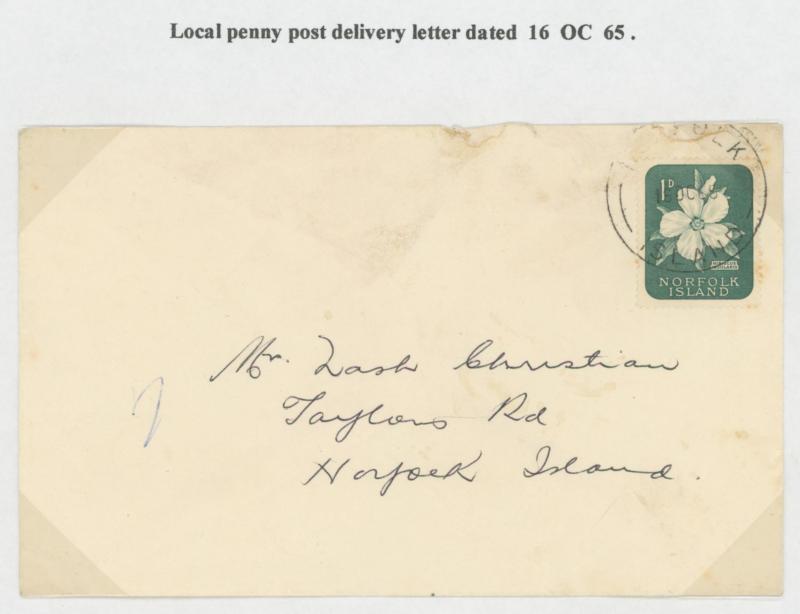 Local penny post delivery letter dated 16 OC 65 .
NORFOLK
OC 65
ISLAND
1D
NORFOLK
ISLAND
Mr. Dash Christian
Taylors Rd
Norfolk Island.